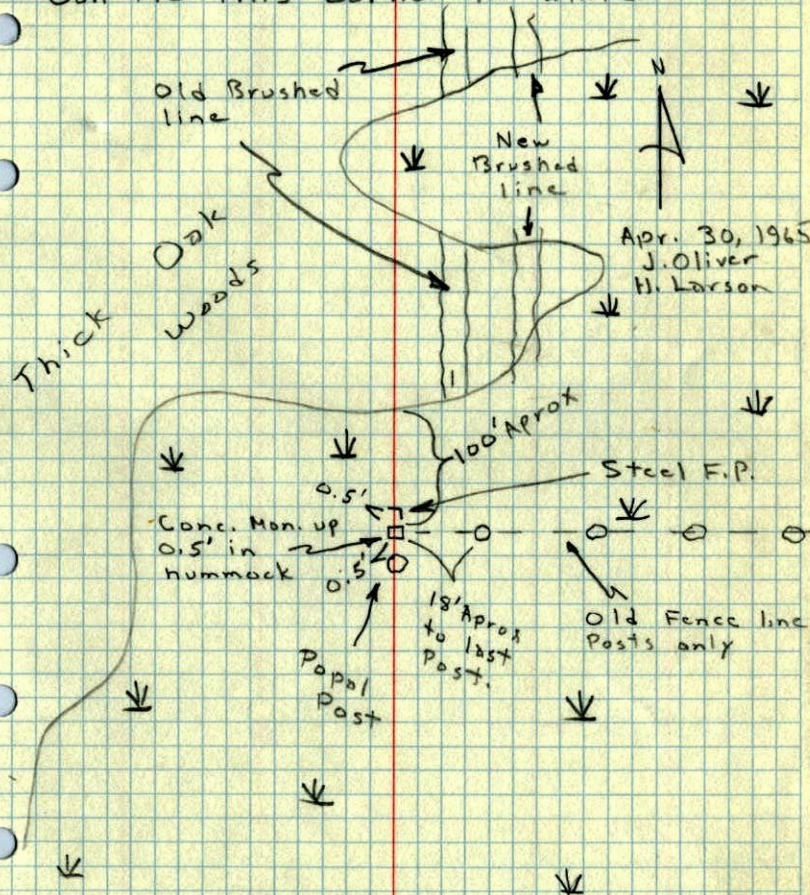 Old Brushed
line
N
New
Brushed
line
Apr. 30, 1965
J. Oliver
H. Larson
Thick Oak
Woods
100' Aprox
Steel F.P.
0.5'
Conc. Mon. up
0.5' in
hummock
0.5'
18' Aprox
to last
Post.
Old Fence line
Posts only
Popal
Post